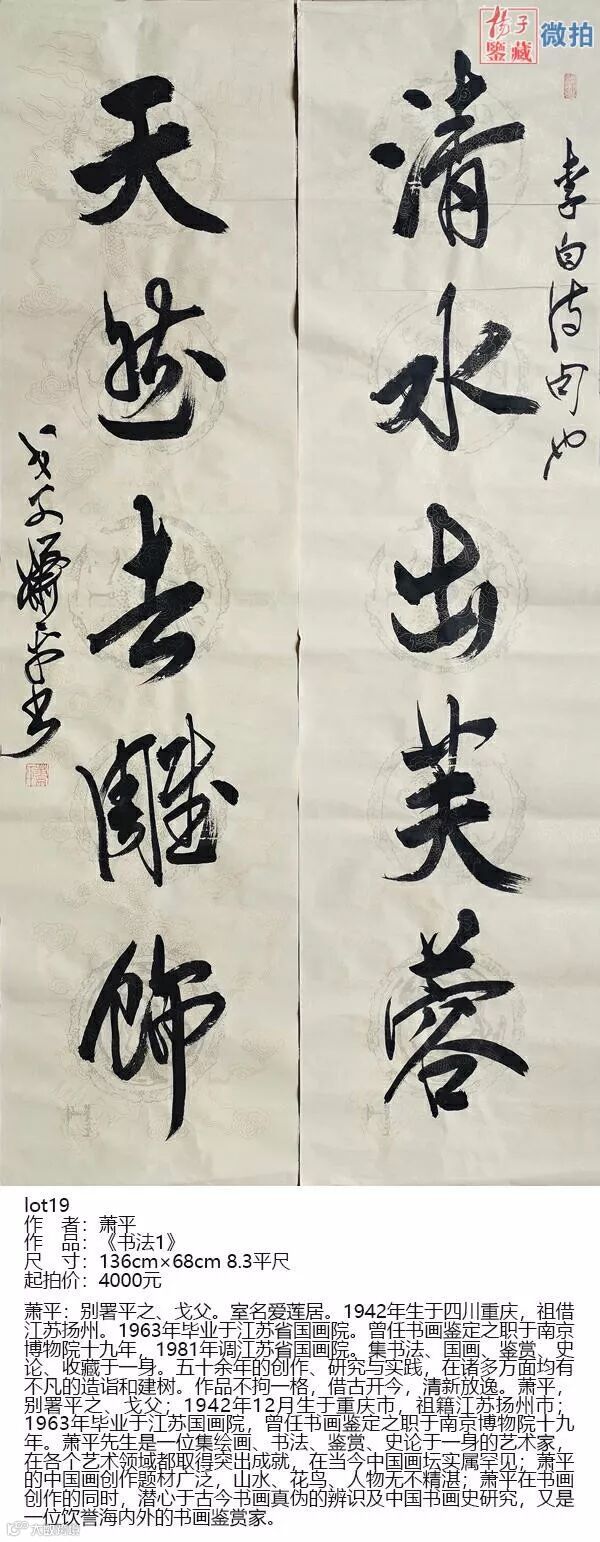 杨子
鉴藏
微拍
清水出芙蓉
李白诗句也
天然去雕饰
戈父萧平书
lot19
作 者：萧平
作 品：《书法1》
尺 寸：136cm×68cm 8.3平尺
起拍价：4000元
萧平：别署平之、戈父。室名爱莲居。1942年生于四川重庆，祖借
江苏扬州。1963年毕业于江苏省国画院。曾任书画鉴定之职于南京
博物院十九年，1981年调江苏省国画院。集书法、国画、鉴赏、史
论、收藏于一身。五十余年的创作、研究与实践，在诸多方面均有
不凡的造诣和建树。作品不拘一格，借古开今，清新放逸。萧平，
别署平之、戈父；1942年12月生于重庆市，祖籍江苏扬州市；
1963年毕业于江苏国画院，曾任书画鉴定之职于南京博物院十九
年。萧平先生是一位集绘画、书法、鉴赏、史论于一身的艺术家，
在各个艺术领域都取得突出成就，在当今中国画坛实属罕见；萧平
的中国画创作题材广泛，山水、花鸟、人物无不精湛；萧平在书画
创作的同时，潜心于古今书画真伪的辨识及中国书画史研究，又是
一位饮誉海内外的书画鉴赏家。